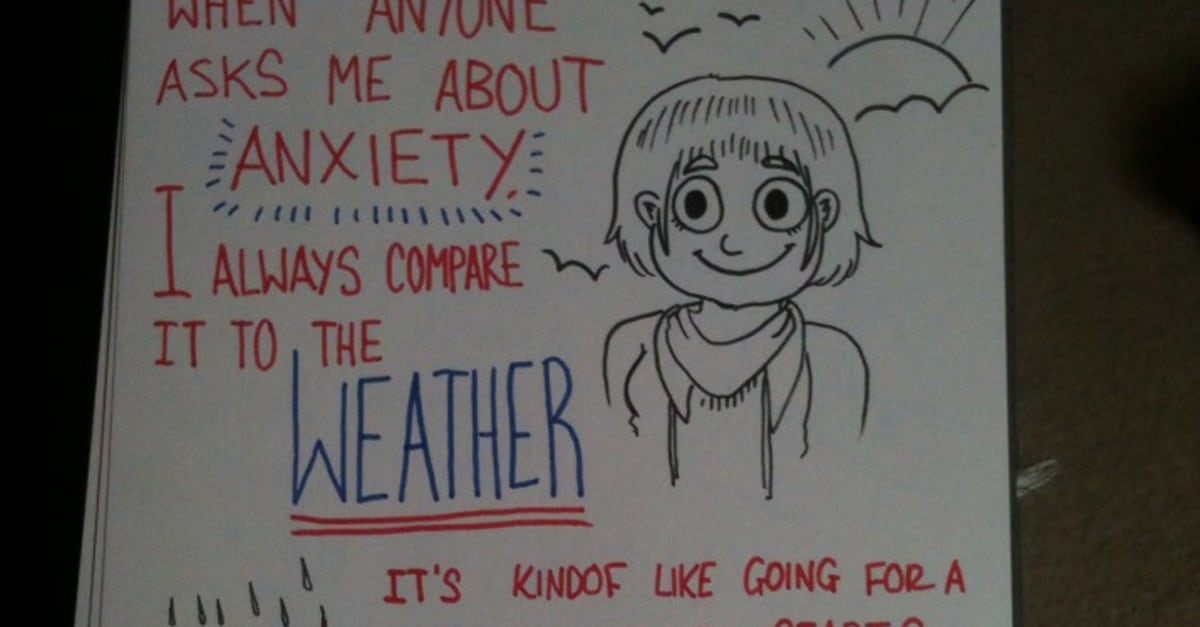 WHEN ANYONE
ASKS ME ABOUT
ANXIETY.
I ALWAYS COMPARE
IT TO THE
WEATHER
IT'S KINDOF LIKE GOING FOR A